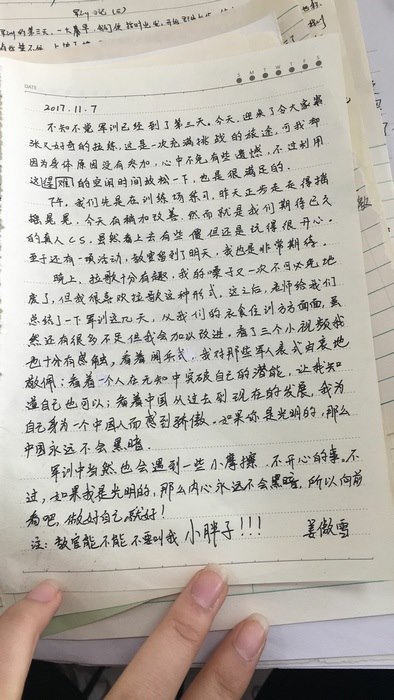 军训日记(三)
DATE
S M T W T F S
2017.11.7
不知不觉军训已经到了第三天。今天,迎来了令大家紧
张又好奇的拉练,这是一次充满挑战的旅途,可我却
因为身体原因没有参加,心中不免有些遗憾,不过利用
这难的空闲时间放松一下,也是很满足的。
下午,我们先是在训练场练习,昨天正步走走得摇
摇晃晃,今天有稍加改善。然而就是我们期待已久
的真人CS,虽然看上去有些傻但还是玩得很开心。
至于还有一项活动,教官留到了明天,我也是非常期待。
晚上,拉歌十分有趣,我的嗓子又一次不可避免地
废了,但我很喜欢拉歌这种形式。这之后,老师给我们
总结了一下军训这几天,从我们的衣食住训方方面面,虽
然还有很多不足但我会加以改进,看了三个小视频我
也十分有感触,看着阅兵式,我对那些军人表式由衷地
敬佩;看着一个人在无知中突破自己的潜能,让我知
道自己也可以;看着中国从过去到现在的发展,我为
自己身为一个中国人而感到骄傲。如果你是光明的,那么
中国永远不会黑暗。
军训中当然也会遇到一些小摩擦、不开心的事。不
过,如果我是光明的,那么内心永远不会黑暗。所以向前
看吧,做好自己就好!
注:教官能不能不要叫我小胖子!!! 姜傲雪